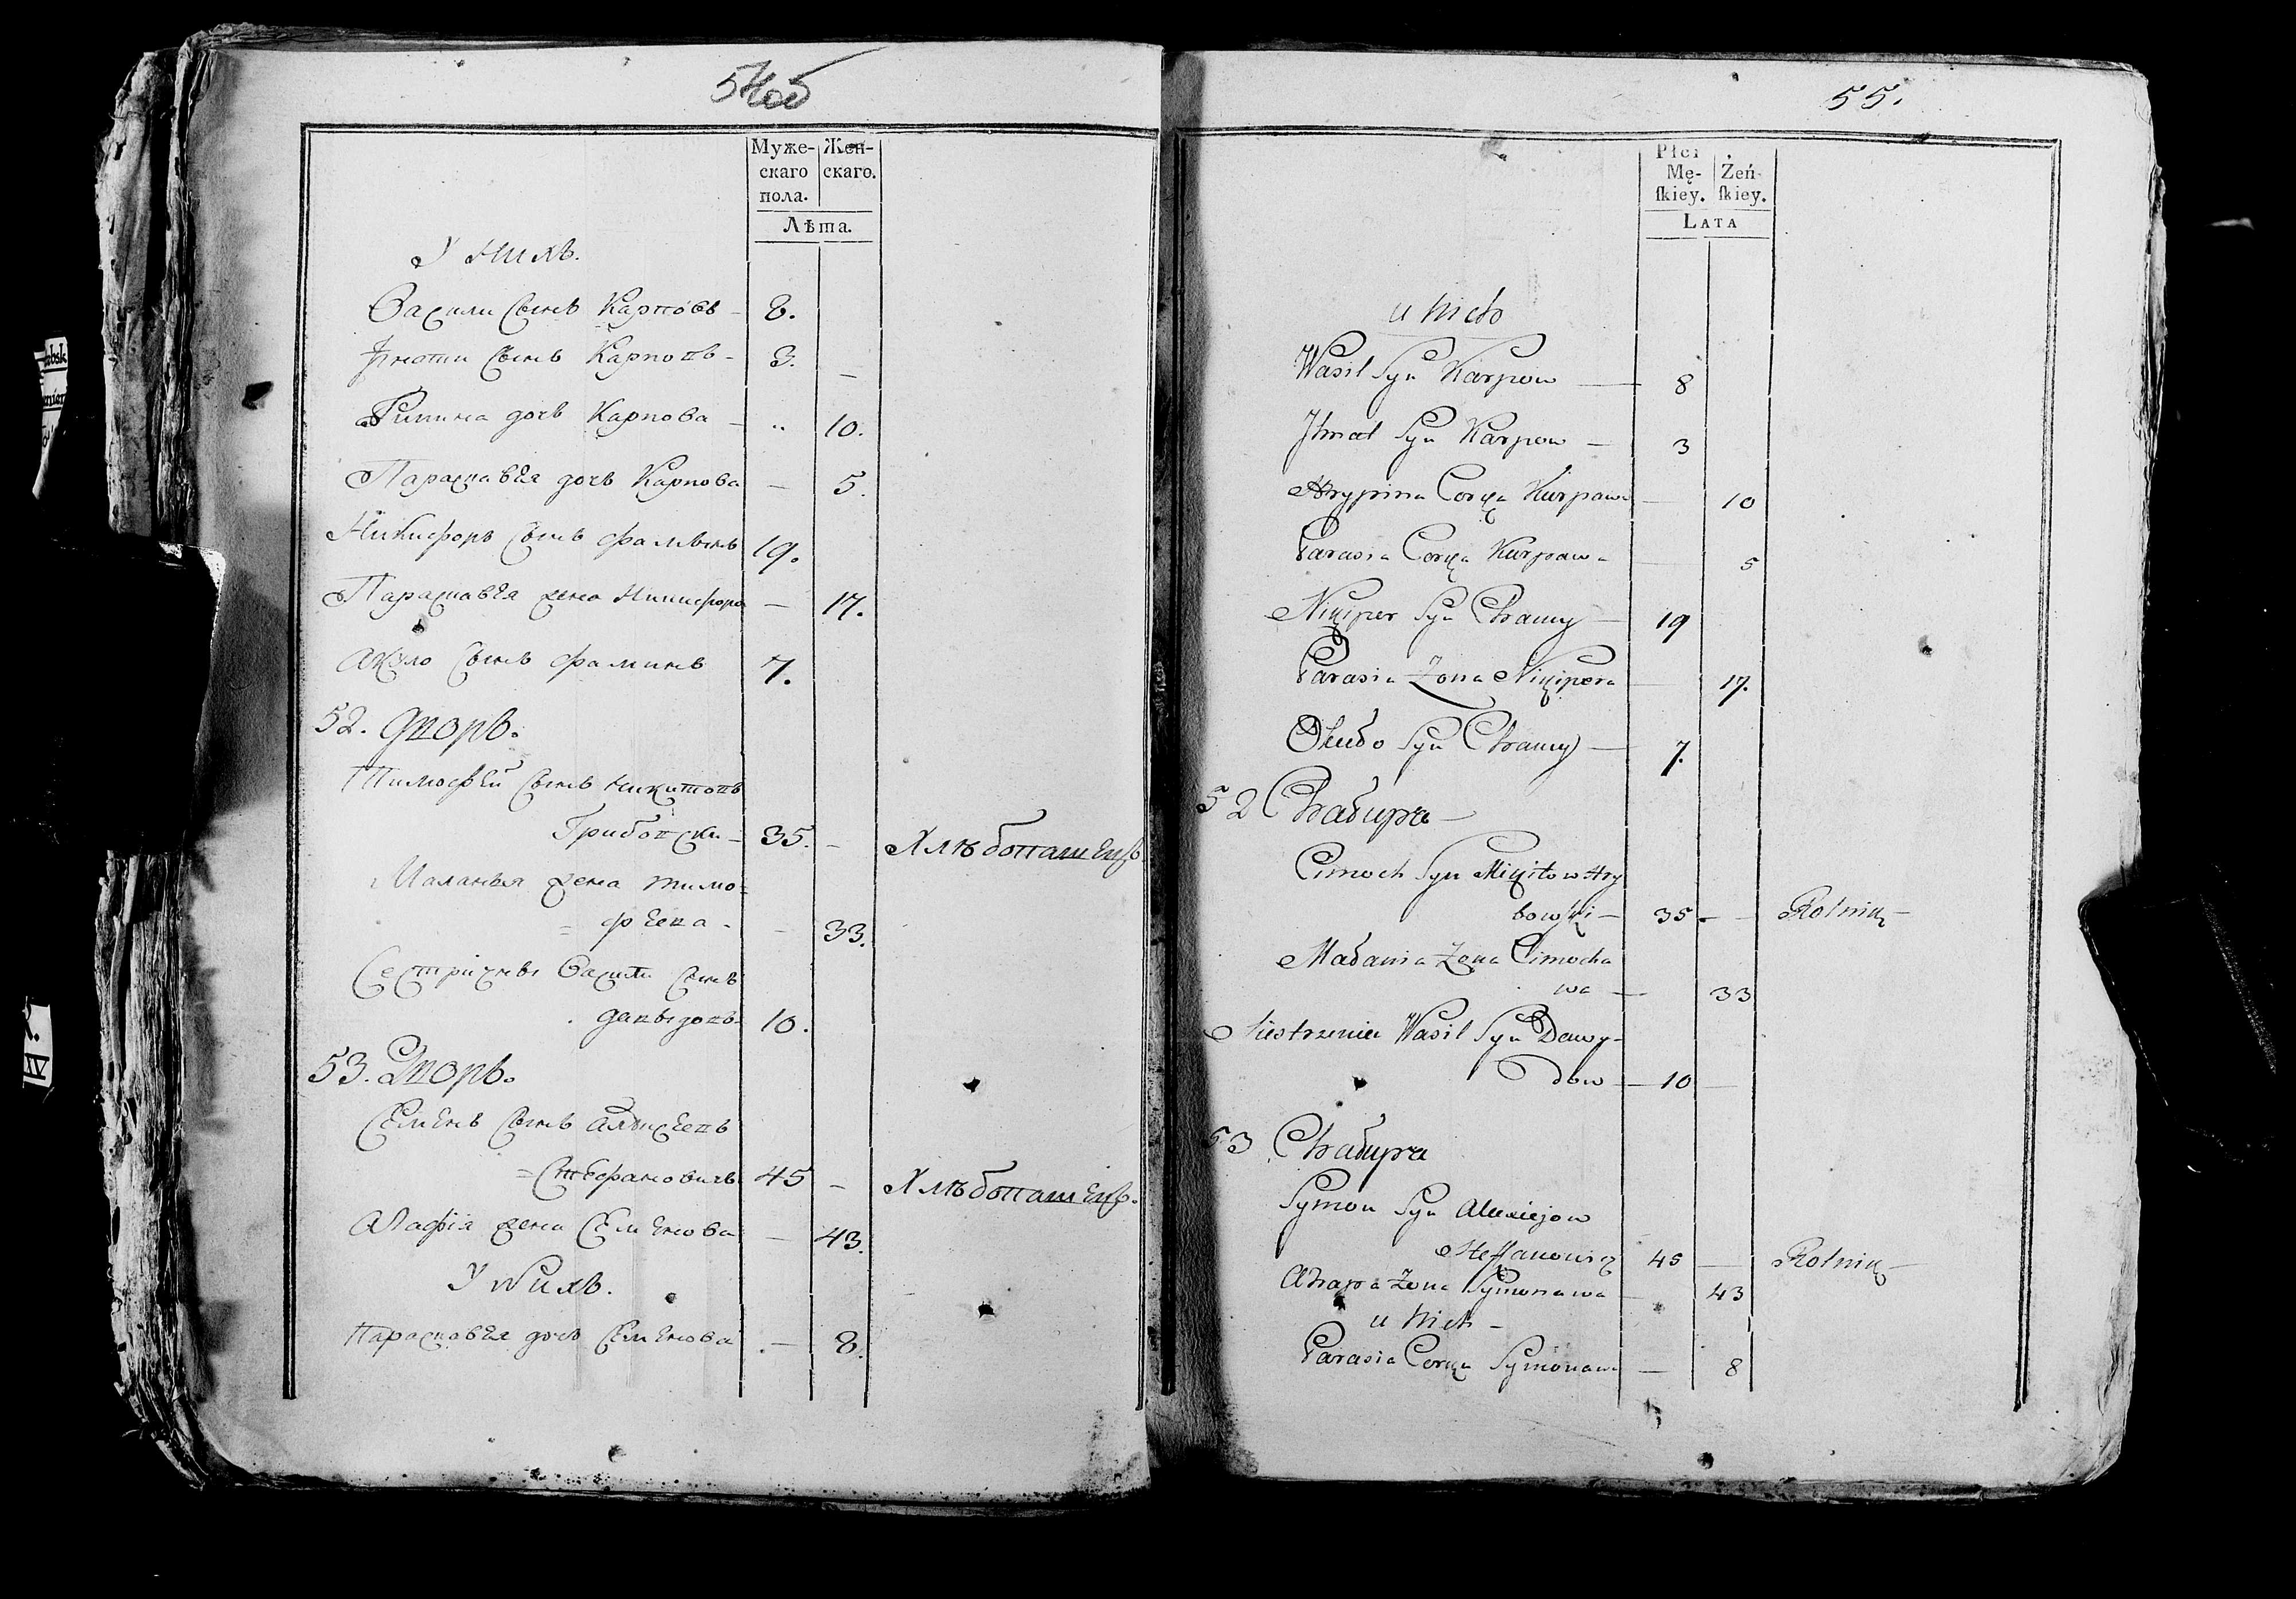 54об
Муже-
скаго
пола.
Жен-
скаго.
Лѣта.
У нихъ.
Васили сынъ Карповъ - 8.
Игнати сынъ Карповъ - 3. -
дочь Карпова - 10.
Параскавѣя дочь Карпова - 5.
Никифоръ сынъ Фамынъ 19.
Параскавѣя жена Никифора - 17.
сынъ Фаминъ 7.
52. Дворъ.
Тимофѣй сынъ Никитовъ
Грибовски - 35. - Хлѣбопашецъ
Маланья жена Тимо-
= фѣева - - 33.
Сестрічнъ Васили сынъ
Давыдовъ 10.
53. Дворъ.
Семенъ сынъ Алѣксѣевъ
= Стѣфановичъ 45 - Хлѣбопашецъ.
Агафія жена Семенова - 43.
У нихъ.
Параскавѣя дочь Семенова - 8.
55.
Płci
Mę-
ſkiey.
Żeń-
ſkiey.
LATA
u nich
Wasil Syn Karpow — 8
Syn Karpow — 3
Hrypina Corka Karpowa — 10
Parasia Corka Karpawa — 5
Nikiper Syn Chamy — 19
Parasia Zona Nikipera — 17.
Syn Chamy — 7.
52 Chałupa —
Cimoch Syn Mikitow Hry
bowski — 35 - - Rolnik —
Małania Zona Cimocha
wa — 33
Siestrzeniec Wasil Syn Dawy-
dow — 10 —
53 Chałupa
Symon Syn Alexiejow
Steffanowicz 45 — Rolnik —
Ahapa Zona Symonawa — 43
u nich —
Parasia Corka Symonawa — 8